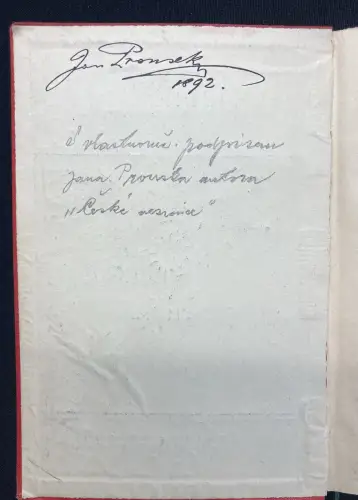 Jan Prousek
1892.
S vlastnoruč. podpisem
Jana Prouska autora
„České vesnice“